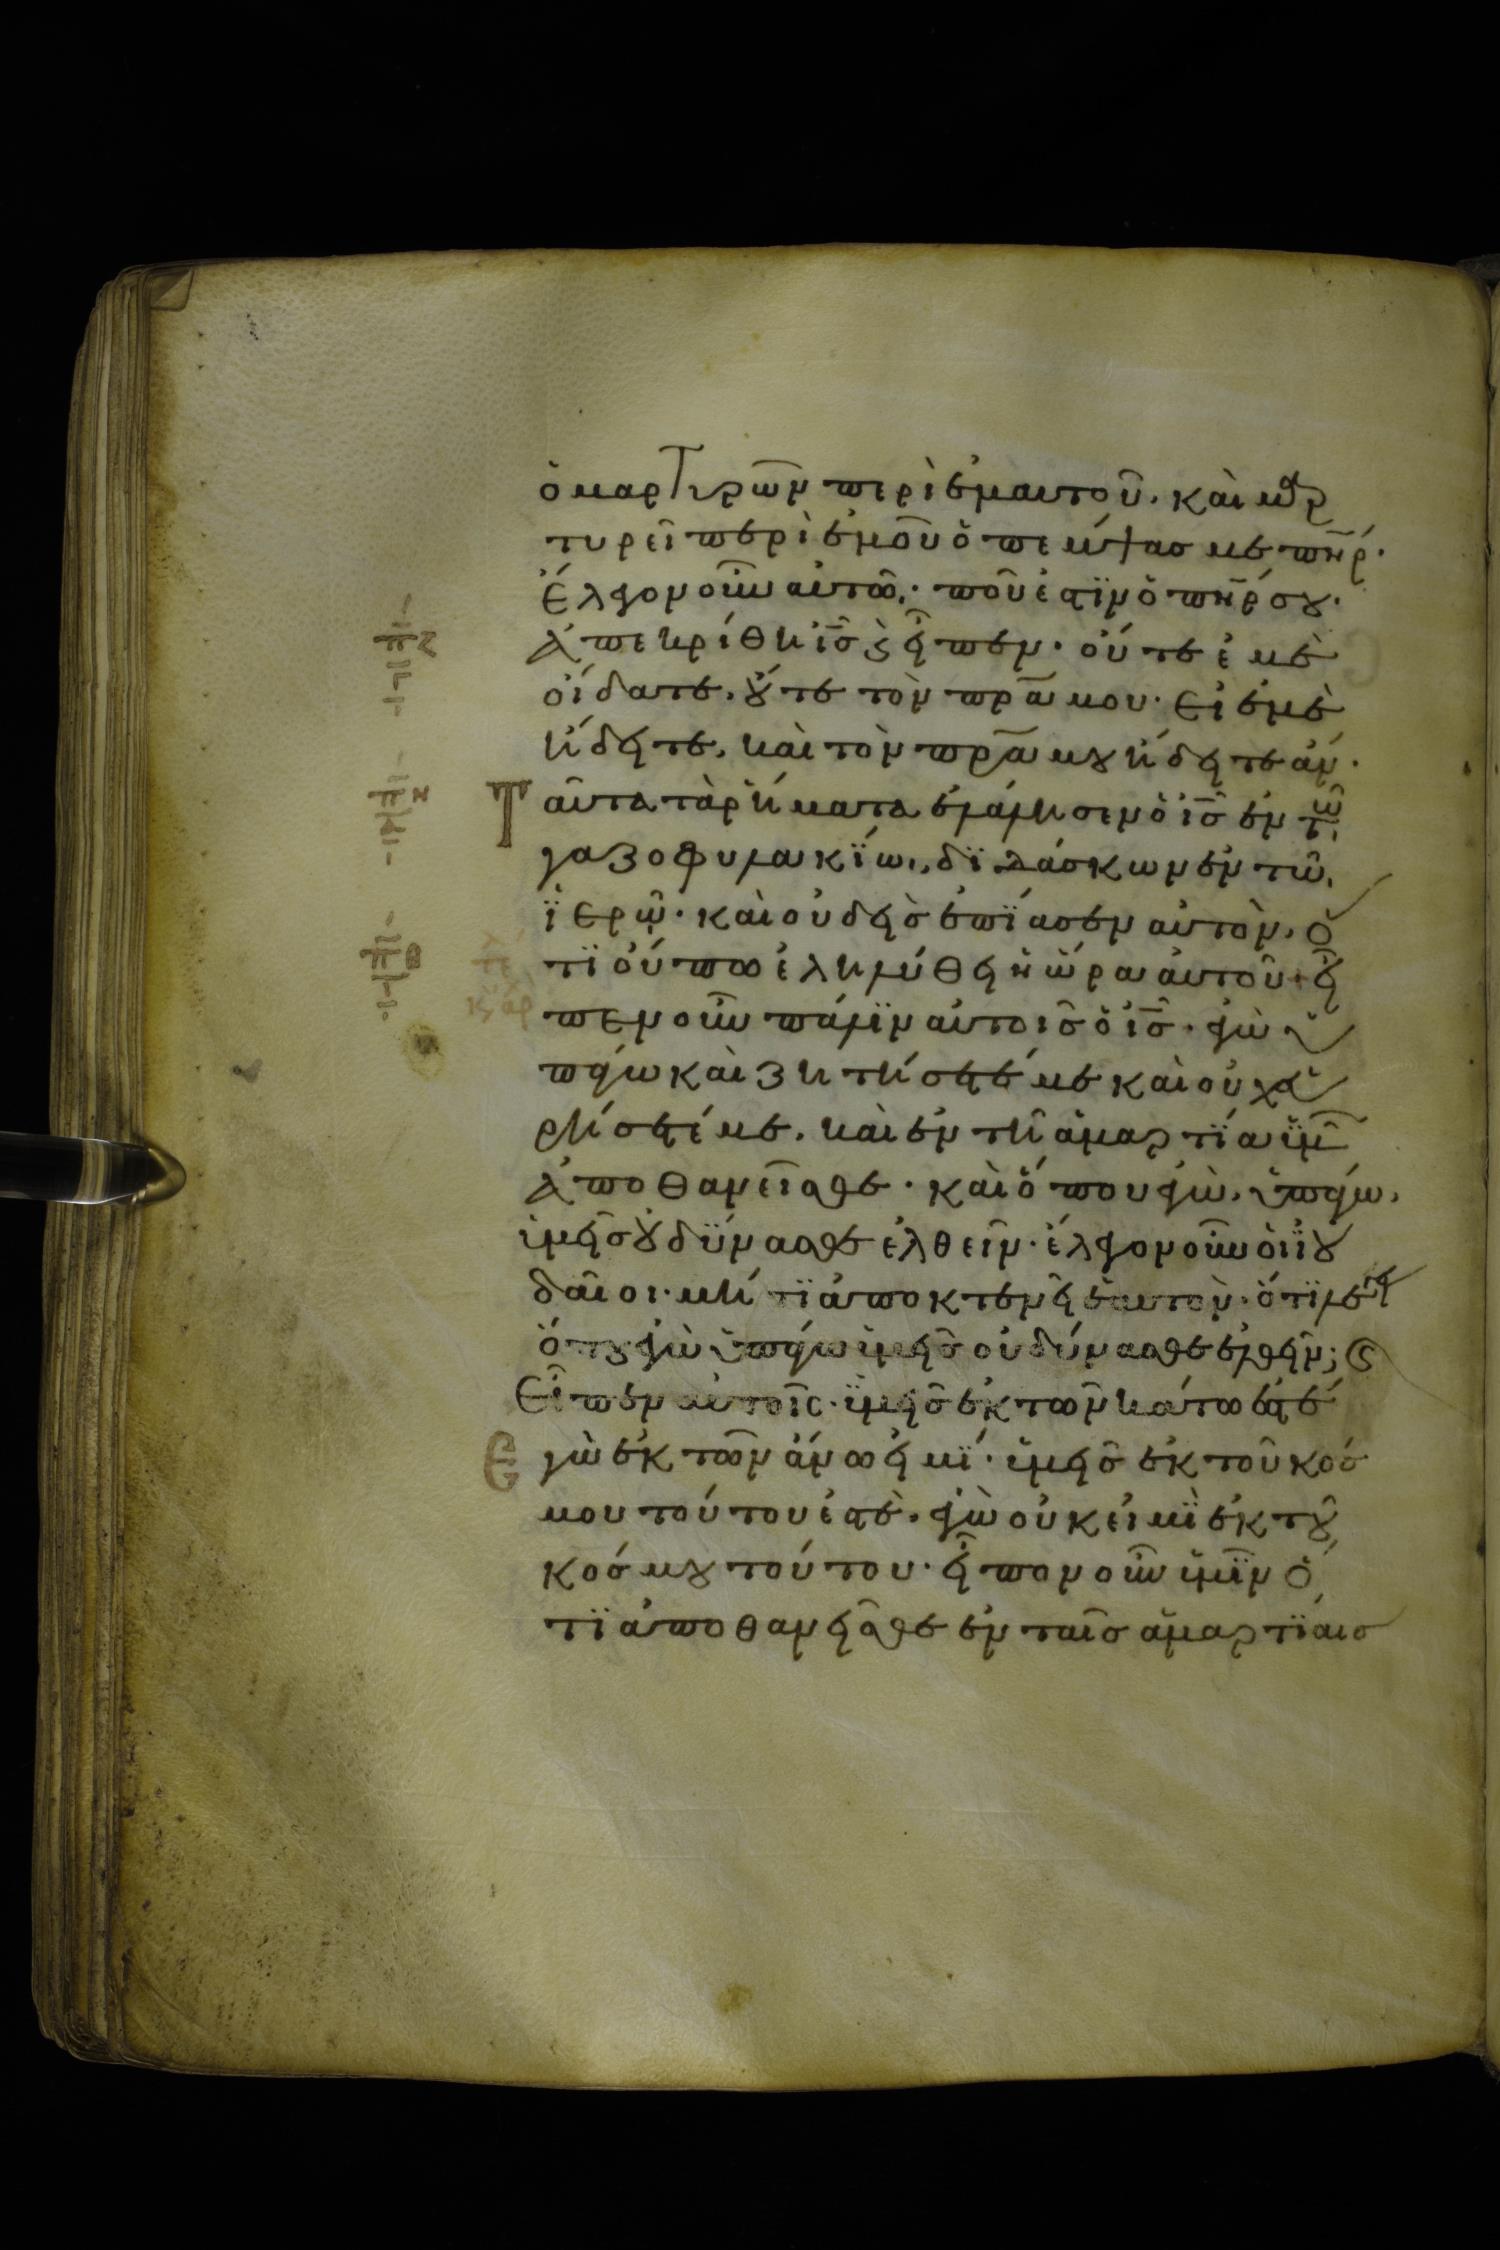 ὁ μαρτυρῶν περὶ ἐμαυτοῦ. καὶ μαρ
τυρεῖ περὶ ἐμοῦ ὁ πέμψασ με πη̅ρ·
Ἔλεγον οὖν αὐτῶ· ποῦ ἐστϊν ὁ πη̅ρ σου·
Ἀπεκρίθη ισ̅ ϗ εἶπεν· οὔτε ἐμὲ
οἴδατε. οὔτε τὸν πρα̅ μου· Εἰ ἐμὲ
ἤδειτε, καὶ τὸν πρα̅ μου ἤδειτε ἄν·
Ταῦτα τὰ ῥήματα ἐλάλησεν ὁ ισ̅ ἐν τῶ
γαζοφυλακΐω, δϊδάσκων ἐν τῶ
ϊερῶ· καὶ οὐδεὶσ ἐπΐασεν αὐτὸν, ὅ
τϊ οὔπω ἐληλύθει ἡ ὥρα αὐτοῦ· εἶ
πεν οὖν πάλϊν αὐτοῖσ ὁ ισ̅· ἐγὼ ὑ
πάγω καὶ ζητήσετέ με καὶ οὐχ εὑ
ρήσετέ με. καὶ ἐν τῆ ἁμαρτΐα ὑμῶν
ἀποθανεῖσθε· καὶ ὅπου ἐγὼ ὑπάγω,
ὑμεῖσ οὐ δϋνασθε ἐλθεῖν· ἔλεγον οὖν οἱ ϊου
δαῖοι· μήτϊ ἀποκτενεῖ ἑαυτὸν· ὅτϊ λέγει
ὅπου ἐγὼ ὑπάγω ὑμεῖσ οὐ δύνασθε ἐλθεῖν; ϗ
Εἶπεν αὐτοῖς· ὑμεῖσ ἐκ τῶν κάτω ἐστέ
Ἐγὼ ἐκ τῶν ἄνω εἰμΐ· ὑμεῖσ ἐκ τοῦ κόσ
μου τούτου ἐστὲ. ἐγὼ οὐκ εἰμῒ ἐκ τοῦ
κόσμου τούτου· εἶπον οὖν ὑμῖν ὅ
τϊ ἀποθανεῖσθε ἐν ταῖσ ἁμαρτΐαισ